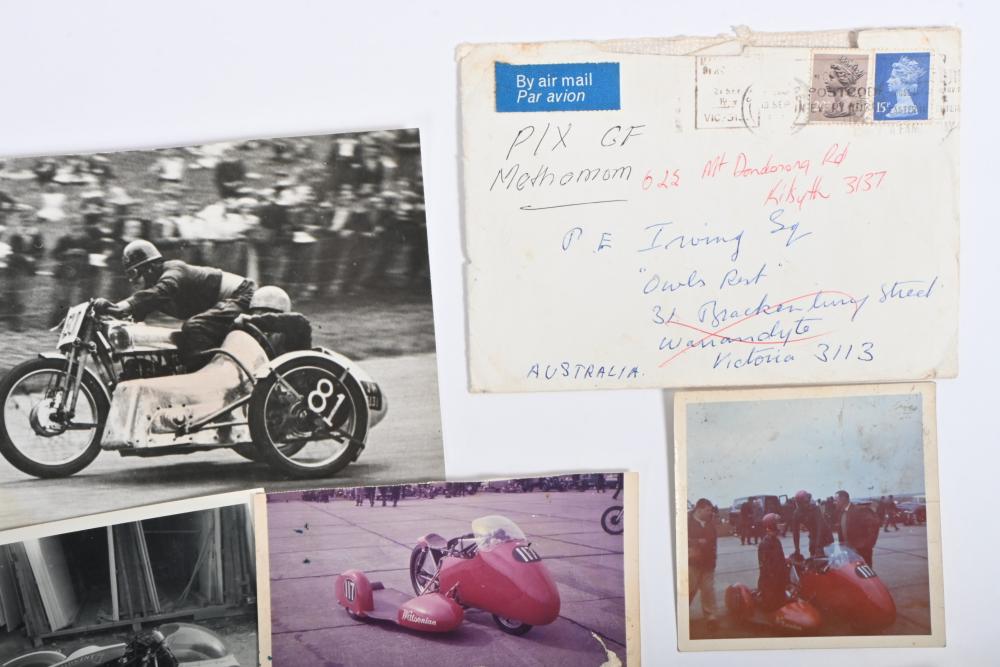 By air mail
Par avion
POSTCODE
15P
PIX OF
Methamom
622 Mt Dandenong Rd
Kilsyth 3137
P. E Irving Esq
"Owls Rest"
31 Brackenbury Street
Warrandyte
Victoria 3113
AUSTRALIA.
81
117
117
Watsonian
117